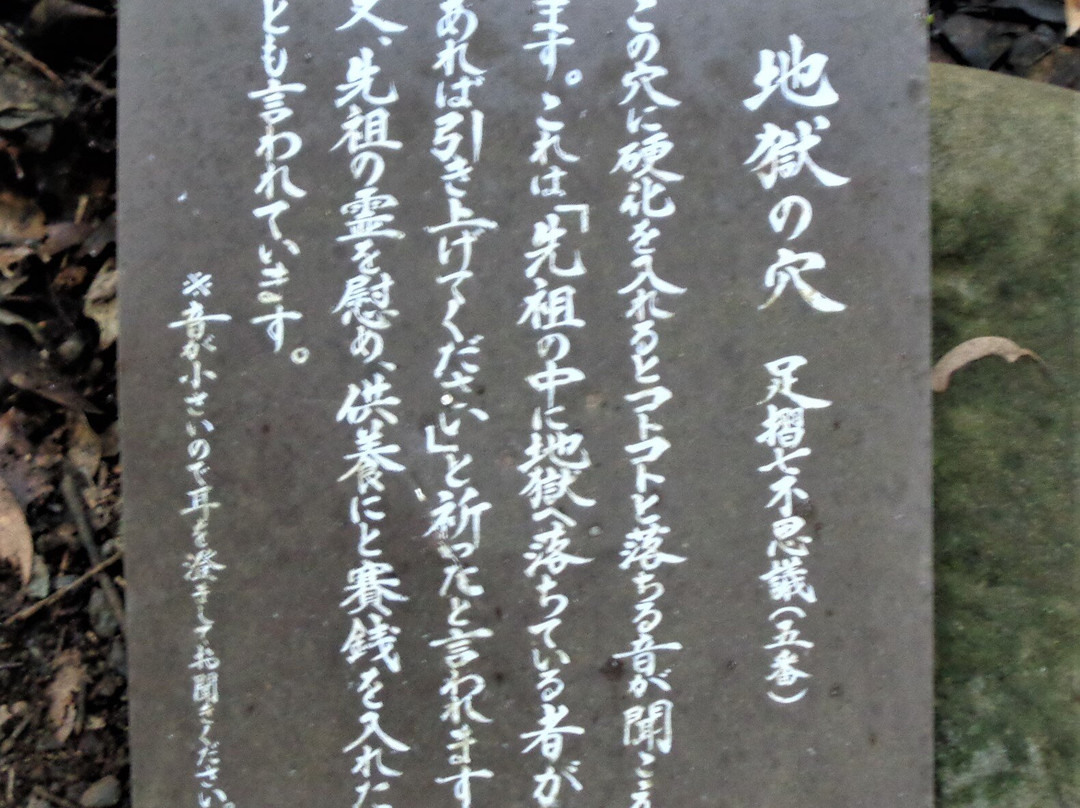 地獄の穴　足摺七不思議（五番）
この穴に硬化を入れるとコトコトと落ちる音が聞こえ
ます。これは「先祖の中に地獄へ落ちている者が
あれば引き上げてください」と祈ったと言われます
又、先祖の霊を慰め、供養にと賽銭を入れた
とも言われています。
※音が小さいので耳を澄ましてお聞きください。